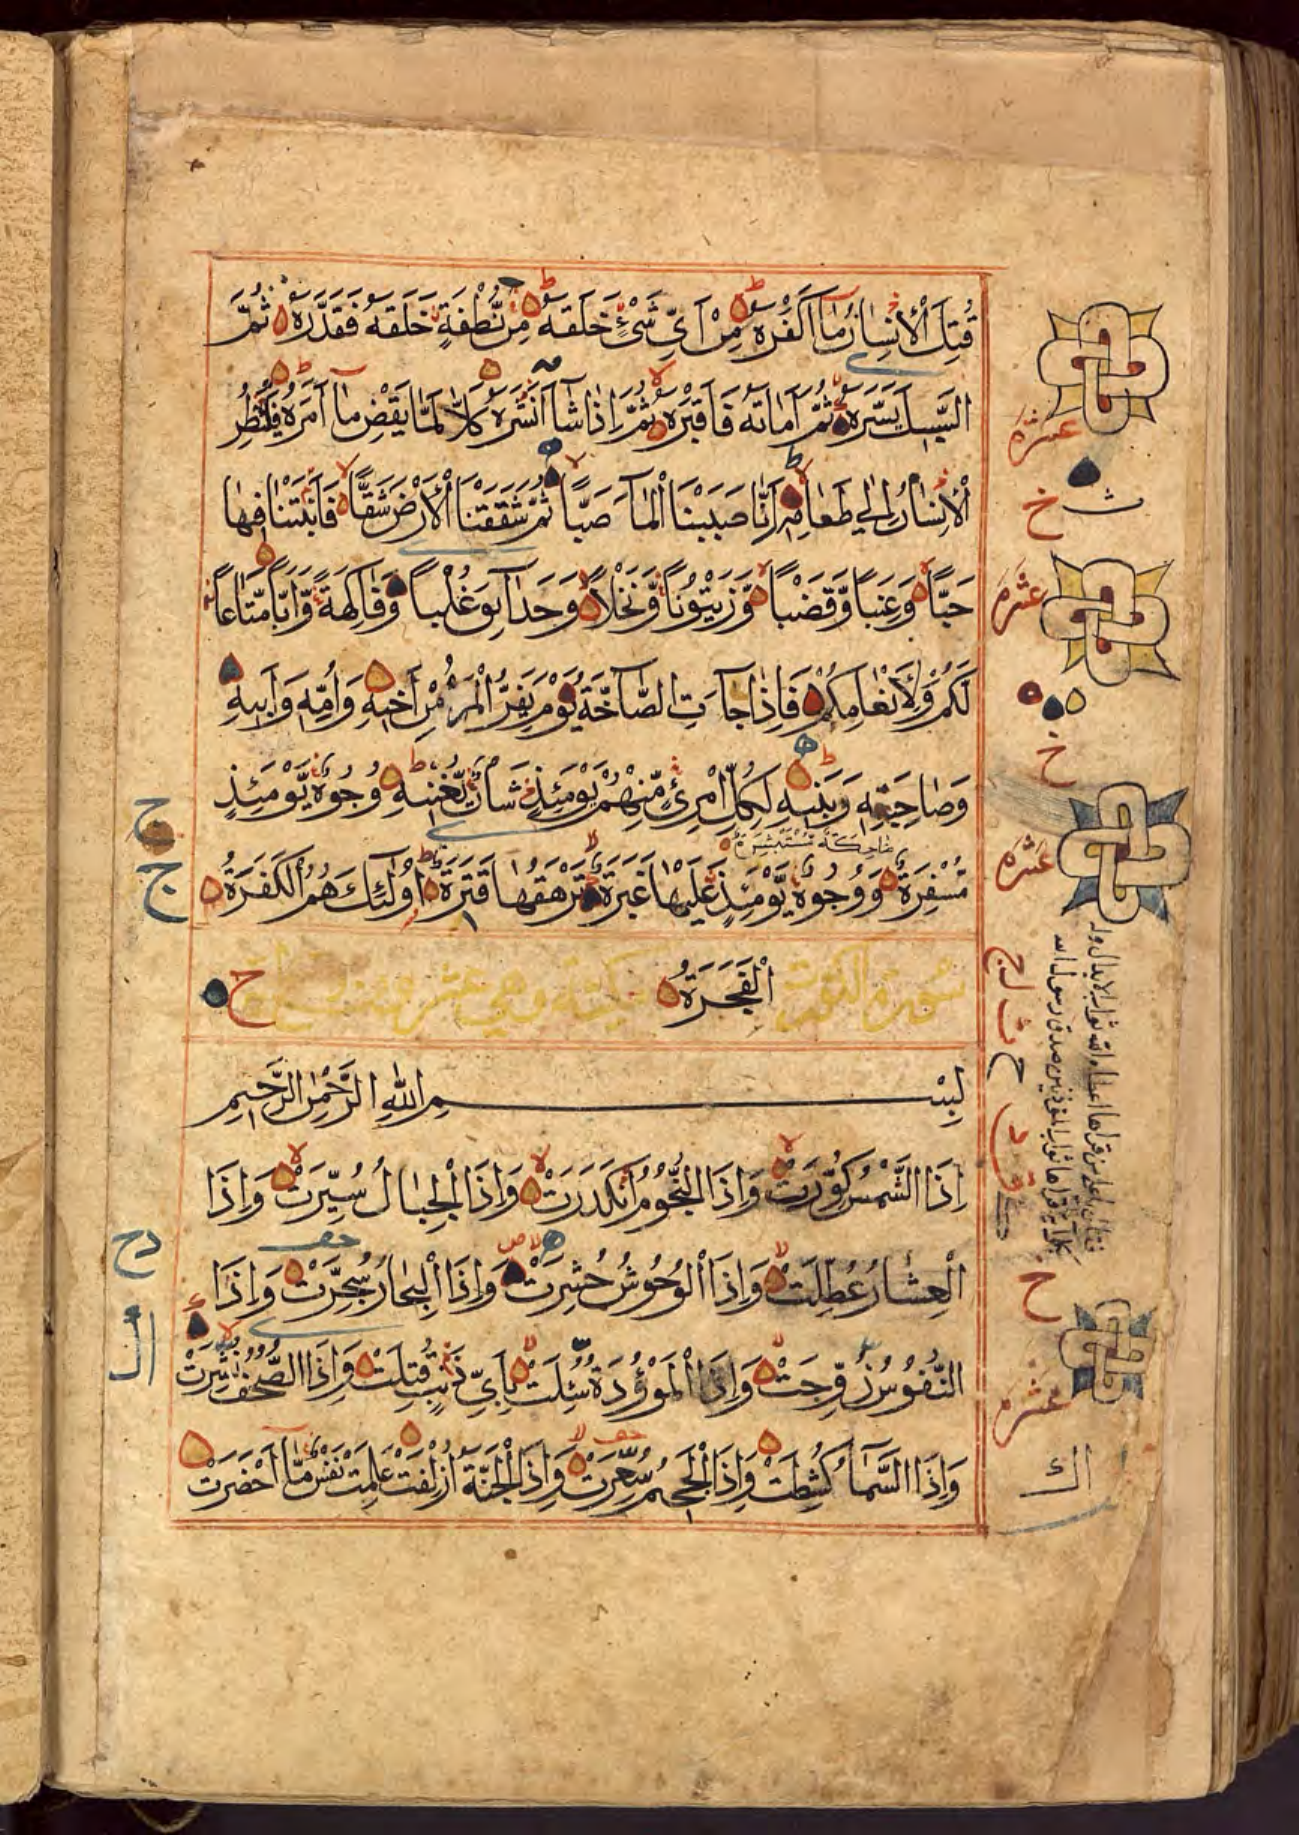 قُتِلَ الْإِنْسَانُ مَا أَكْفَرَهُ مِنْ أَيِّ شَيْءٍ خَلَقَهُ مِنْ نُّطْفَةٍ خَلَقَهُ فَقَدَّرَهُ ثُمَّ
السَّبِيلَ يَسَّرَهُ ثُمَّ أَمَاتَهُ فَأَقْبَرَهُ ثُمَّ إِذَا شَاءَ أَنْشَرَهُ كَلَّا لَمَّا يَقْضِ مَا أَمَرَهُ فَلْيَنْظُرِ
الْإِنْسَانُ إِلَى طَعَامِهِ أَنَّا صَبَبْنَا الْمَاءَ صَبًّا ثُمَّ شَقَقْنَا الْأَرْضَ شَقًّا فَأَنْبَتْنَا فِيهَا
حَبًّا وَعِنَبًا وَّقَضْبًا وَّزَيْتُونًا وَّنَخْلًا وَحَدَائِقَ غُلْبًا وَّفَاكِهَةً وَّأَبًّا مَّتَاعًا
لَكُمْ وَلِأَنْعَامِكُمْ فَإِذَا جَاءَتِ الصَّاخَّةُ يَوْمَ يَفِرُّ الْمَرْءُ مِنْ أَخِيهِ وَأُمِّهِ وَأَبِيهِ
وَصَاحِبَتِهِ وَبَنِيهِ لِكُلِّ امْرِئٍ مِّنْهُمْ يَوْمَئِذٍ شَأْنٌ يُّغْنِيهِ وُجُوهٌ يَّوْمَئِذٍ
ضَاحِكَةٌ مُّسْتَبْشِرَةٌ
مُّسْفِرَةٌ وَوُجُوهٌ يَّوْمَئِذٍ عَلَيْهَا غَبَرَةٌ تَرْهَقُهَا قَتَرَةٌ أُولَئِكَ هُمُ الْكَفَرَةُ
الْفَجَرَةُ
بِسْمِ اللَّهِ الرَّحْمَٰنِ الرَّحِيمِ
إِذَا الشَّمْسُ كُوِّرَتْ وَإِذَا النُّجُومُ انْكَدَرَتْ وَإِذَا الْجِبَالُ سُيِّرَتْ وَإِذَا
الْعِشَارُ عُطِّلَتْ وَإِذَا الْوُحُوشُ حُشِرَتْ وَإِذَا الْبِحَارُ سُجِّرَتْ وَإِذَا
النُّفُوسُ زُوِّجَتْ وَإِذَا الْمَوْءُودَةُ سُئِلَتْ بِأَيِّ ذَنْبٍ قُتِلَتْ وَإِذَا الصُّحُفُ نُشِرَتْ
وَإِذَا السَّمَاءُ كُشِطَتْ وَإِذَا الْجَحِيمُ سُعِّرَتْ وَإِذَا الْجَنَّةُ أُزْلِفَتْ عَلِمَتْ نَفْسٌ مَّا أَحْضَرَتْ
عشره
خ
عشره
خ
عشره
ح
عشره